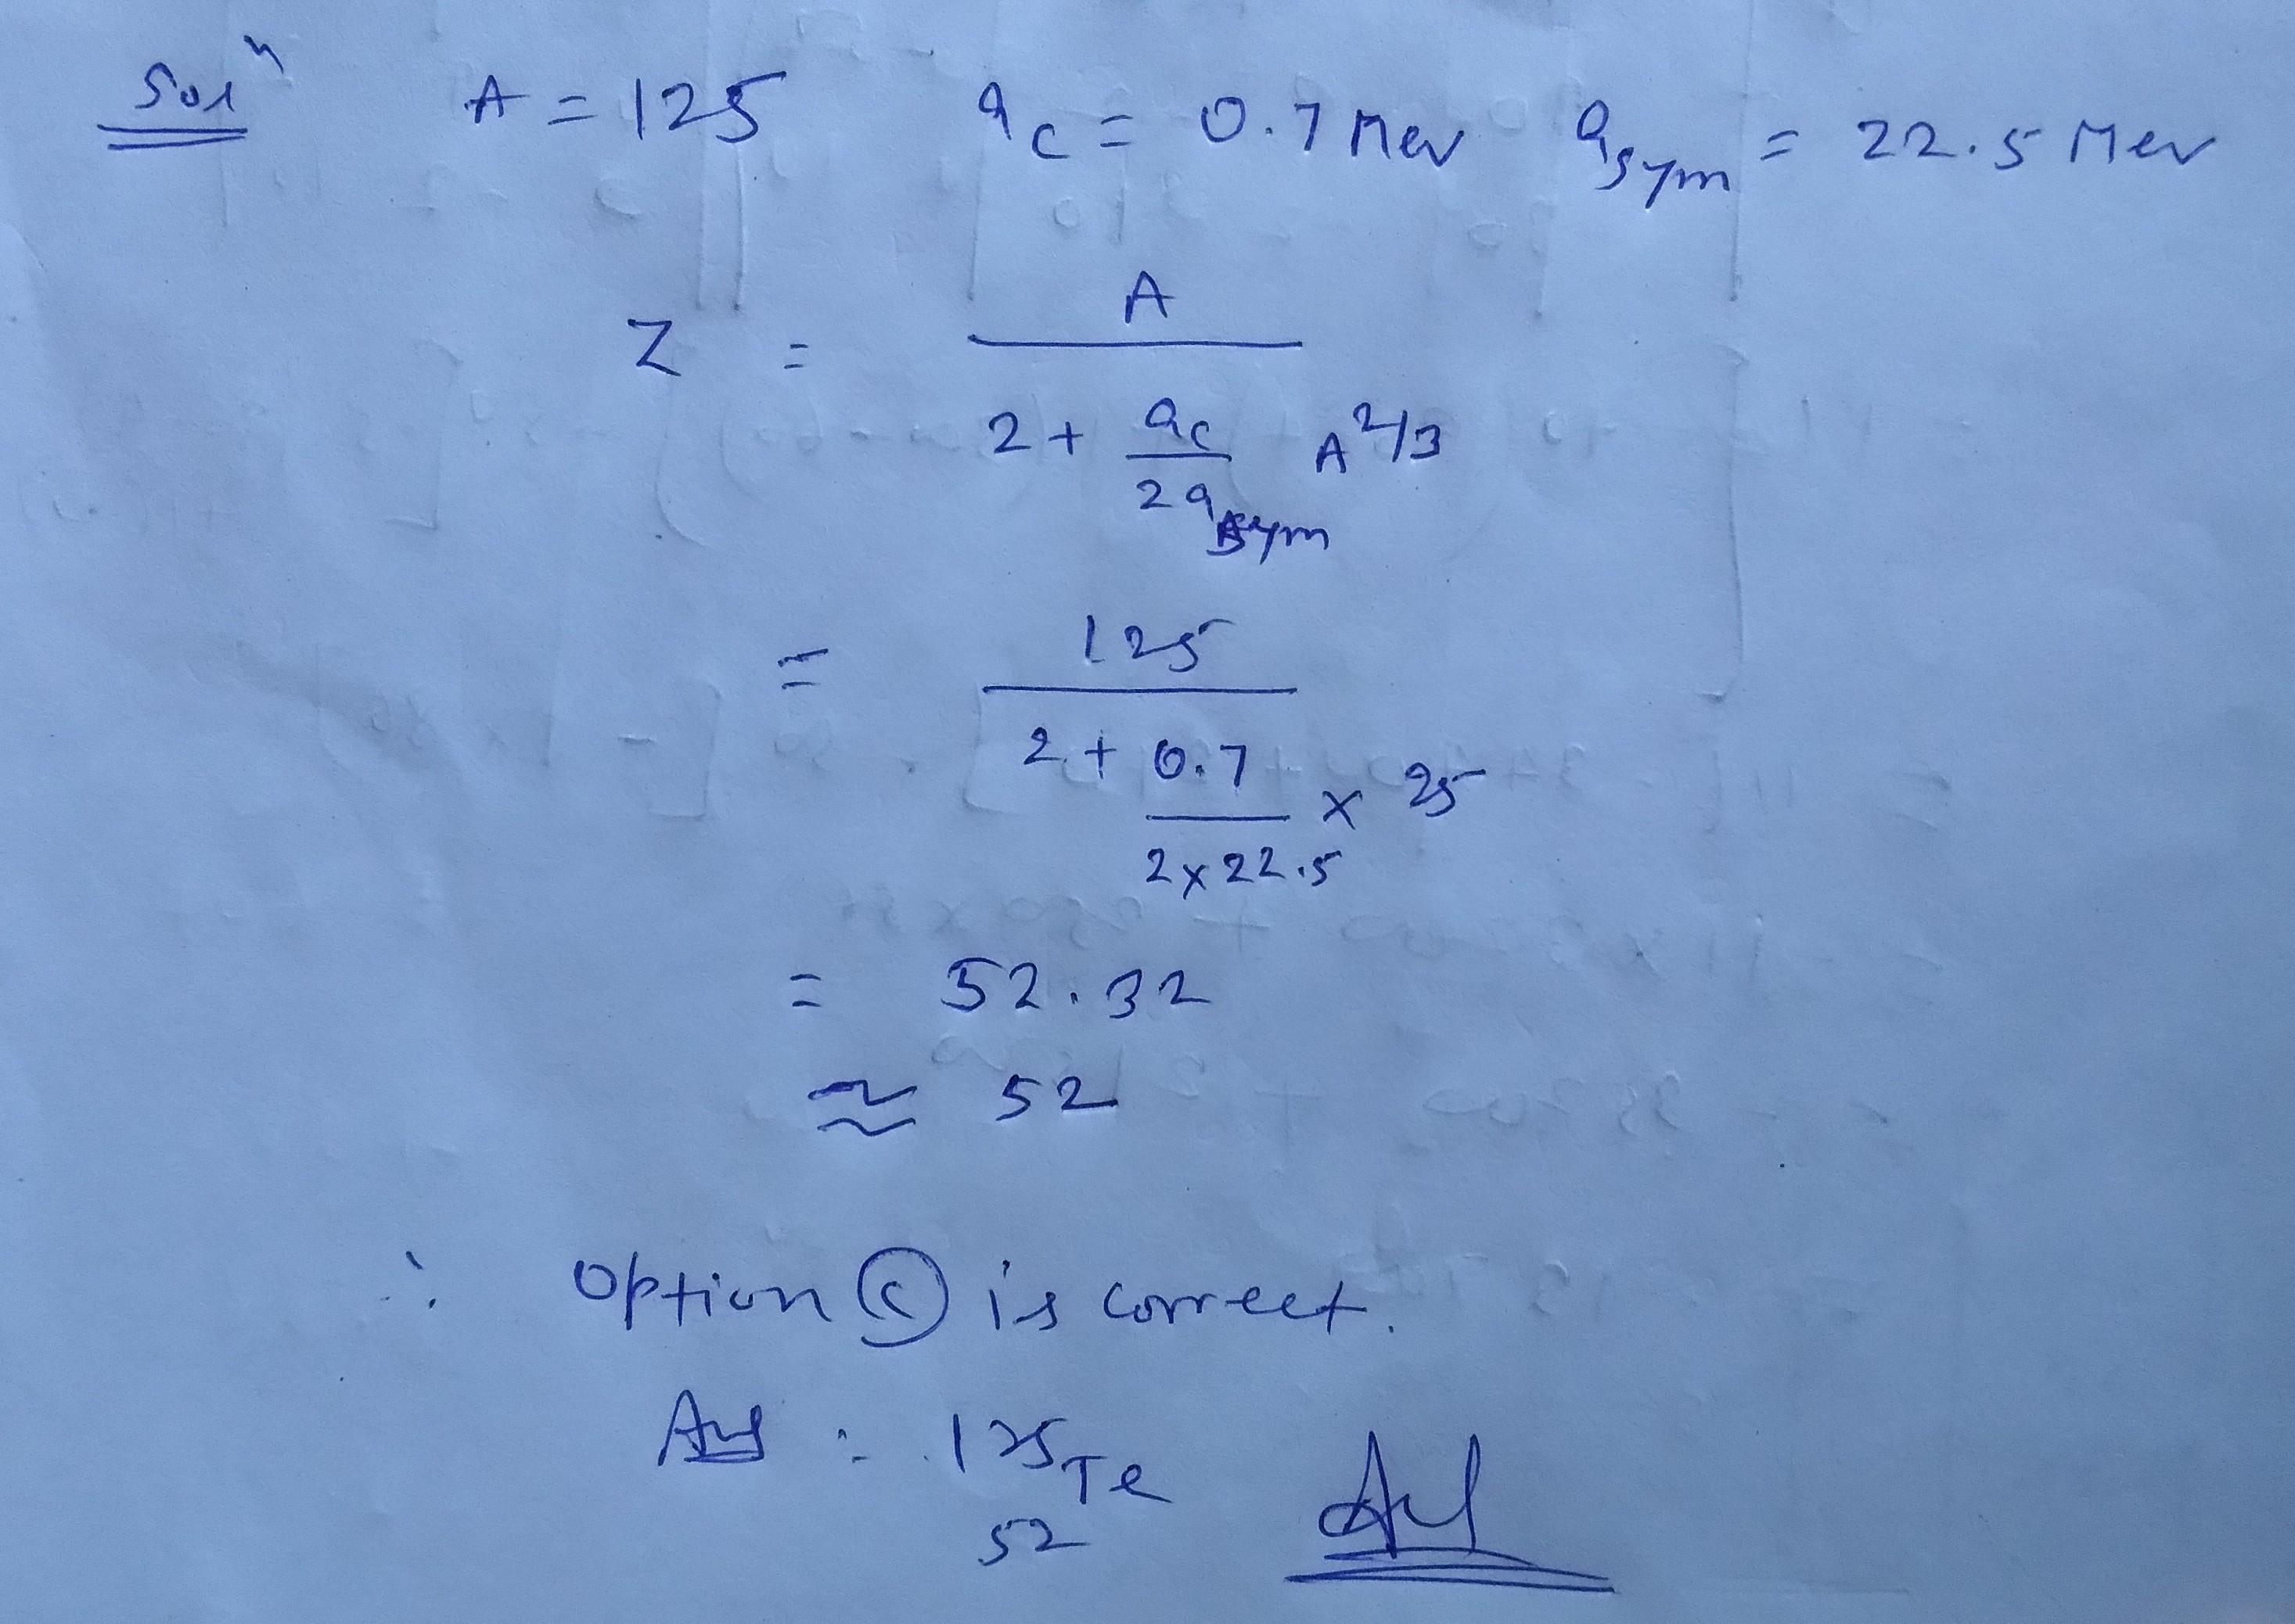 Solⁿ A = 125 a_c = 0.7 Mev a_sym = 22.5 Mev
Z = A
2 + a_c A^2/3
2a_sym
= 125
2 + 0.7 × 25
2×22.5
= 52.32
≈ 52
∴ Option (c) is correct.
Ans : 125 Te
52